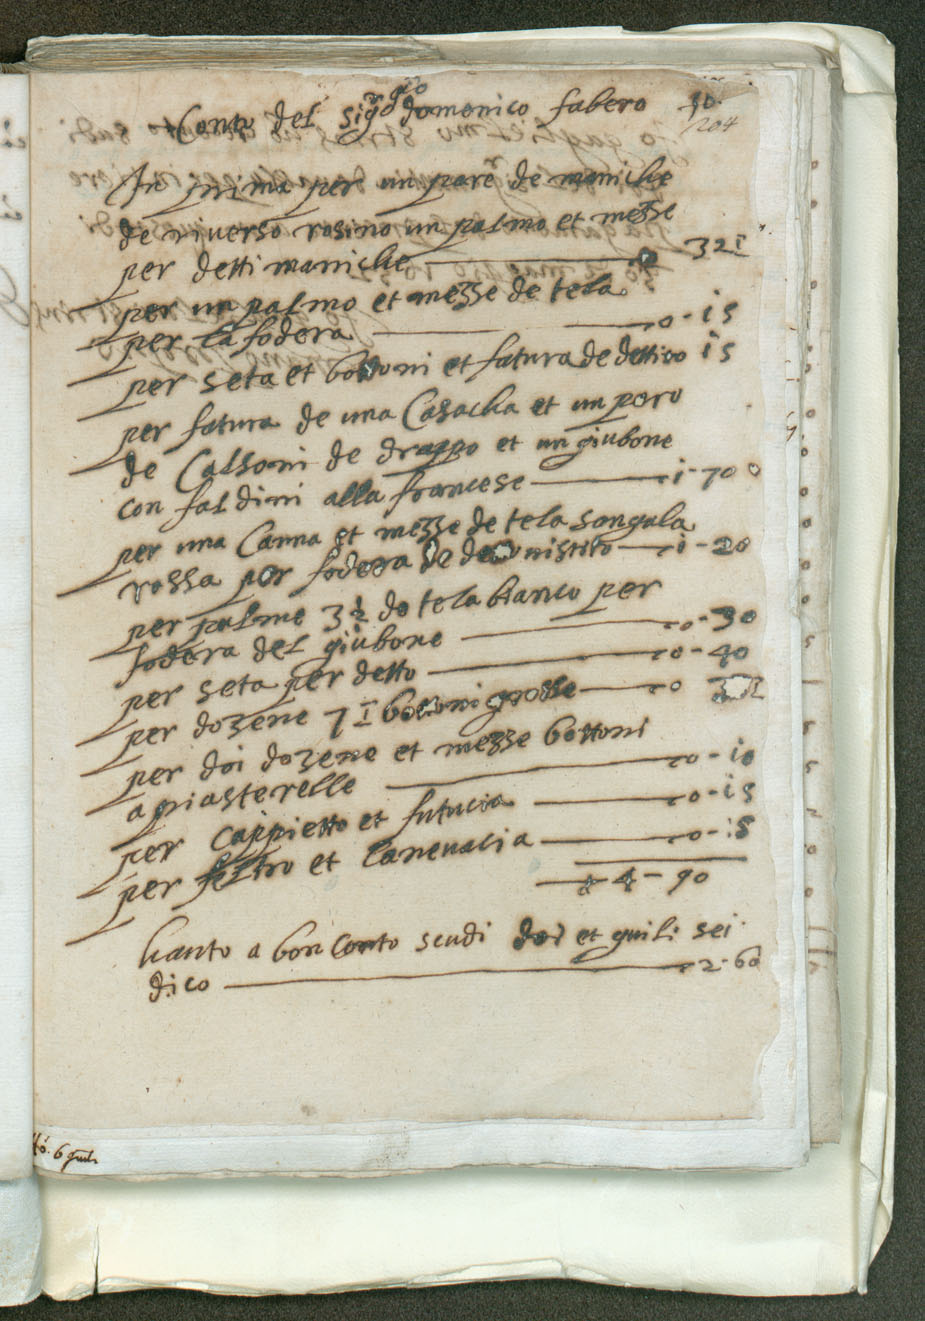 Conto del sigr gio domenico fabero 10.
204
In prima per un pare de maniche
de riverso rosino un palmo et mezze
per detti maniche 0 32½
per un palmo et mezze de tela
per la fodera 0-15
per seta et bottoni et fatura de detti 00 15
per fatura de una Casacha et un paro
de Calsoni de drappo et un giubone
con faldini alla francese 1-70
per una Canna et mezze de tela sangala
rossa per fodera de de vistito 1-20
per palme 3½ de tela bianco per
fodera del giubone 0-30
per seta per detto 0-40
per dozene 7½ bottoni grosse 0
per doi dozene et mezze bottoni
a piasterelle 0-10
per cappietto et futucia 0-15
per feltro et Canevacia 0-15
4-90
hauto a bon Conto scudi doi et guili sei
dico 2-60
6